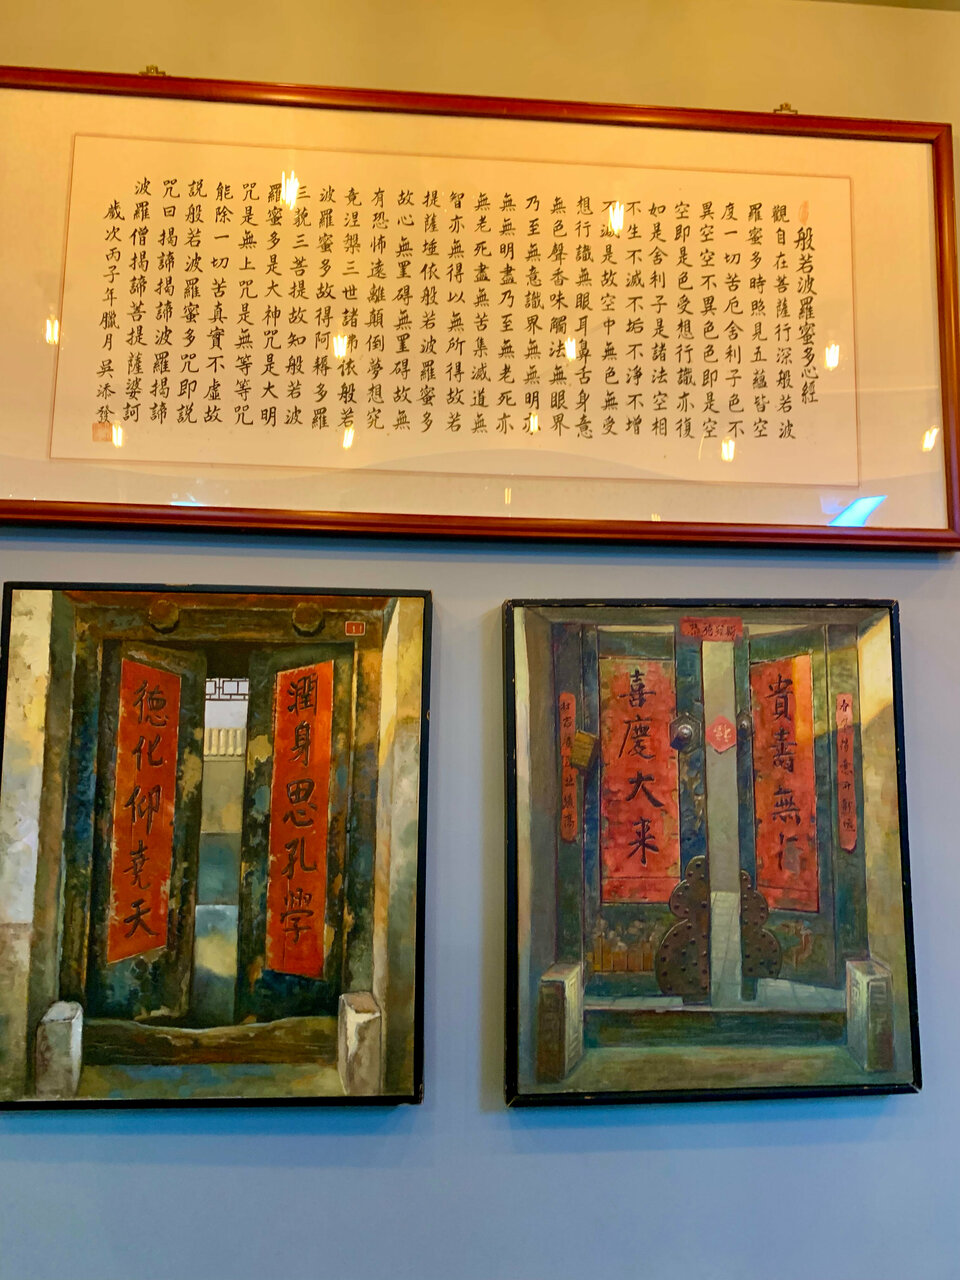 般若波羅蜜多心經
觀自在菩薩行深般若波
羅蜜多時照見五蘊皆空
度一切苦厄舍利子色不
異空空不異色色即是空
空即是色受想行識亦復
如是舍利子是諸法空相
不生不滅不垢不淨不增
不減是故空中無色無受
想行識無眼耳鼻舌身意
無色聲香味觸法無眼界
乃至無意識界無無明亦
無無明盡乃至無老死亦
無老死盡無苦集滅道無
智亦無得以無所得故菩
提薩埵依般若波羅蜜多
故心無罣礙無罣礙故無
有恐怖遠離顛倒夢想究
竟涅槃三世諸佛依般若
波羅蜜多故得阿耨多羅
三藐三菩提故知般若波
羅蜜多是大神咒是大明
咒是無上咒是無等等咒
能除一切苦真實不虛故
說般若波羅蜜多咒即說
咒曰揭諦揭諦波羅揭諦
波羅僧揭諦菩提薩婆訶
歲次丙子年臘月吳添發
潤身思孔學
德化仰堯天
11
貴壽無
喜慶大来